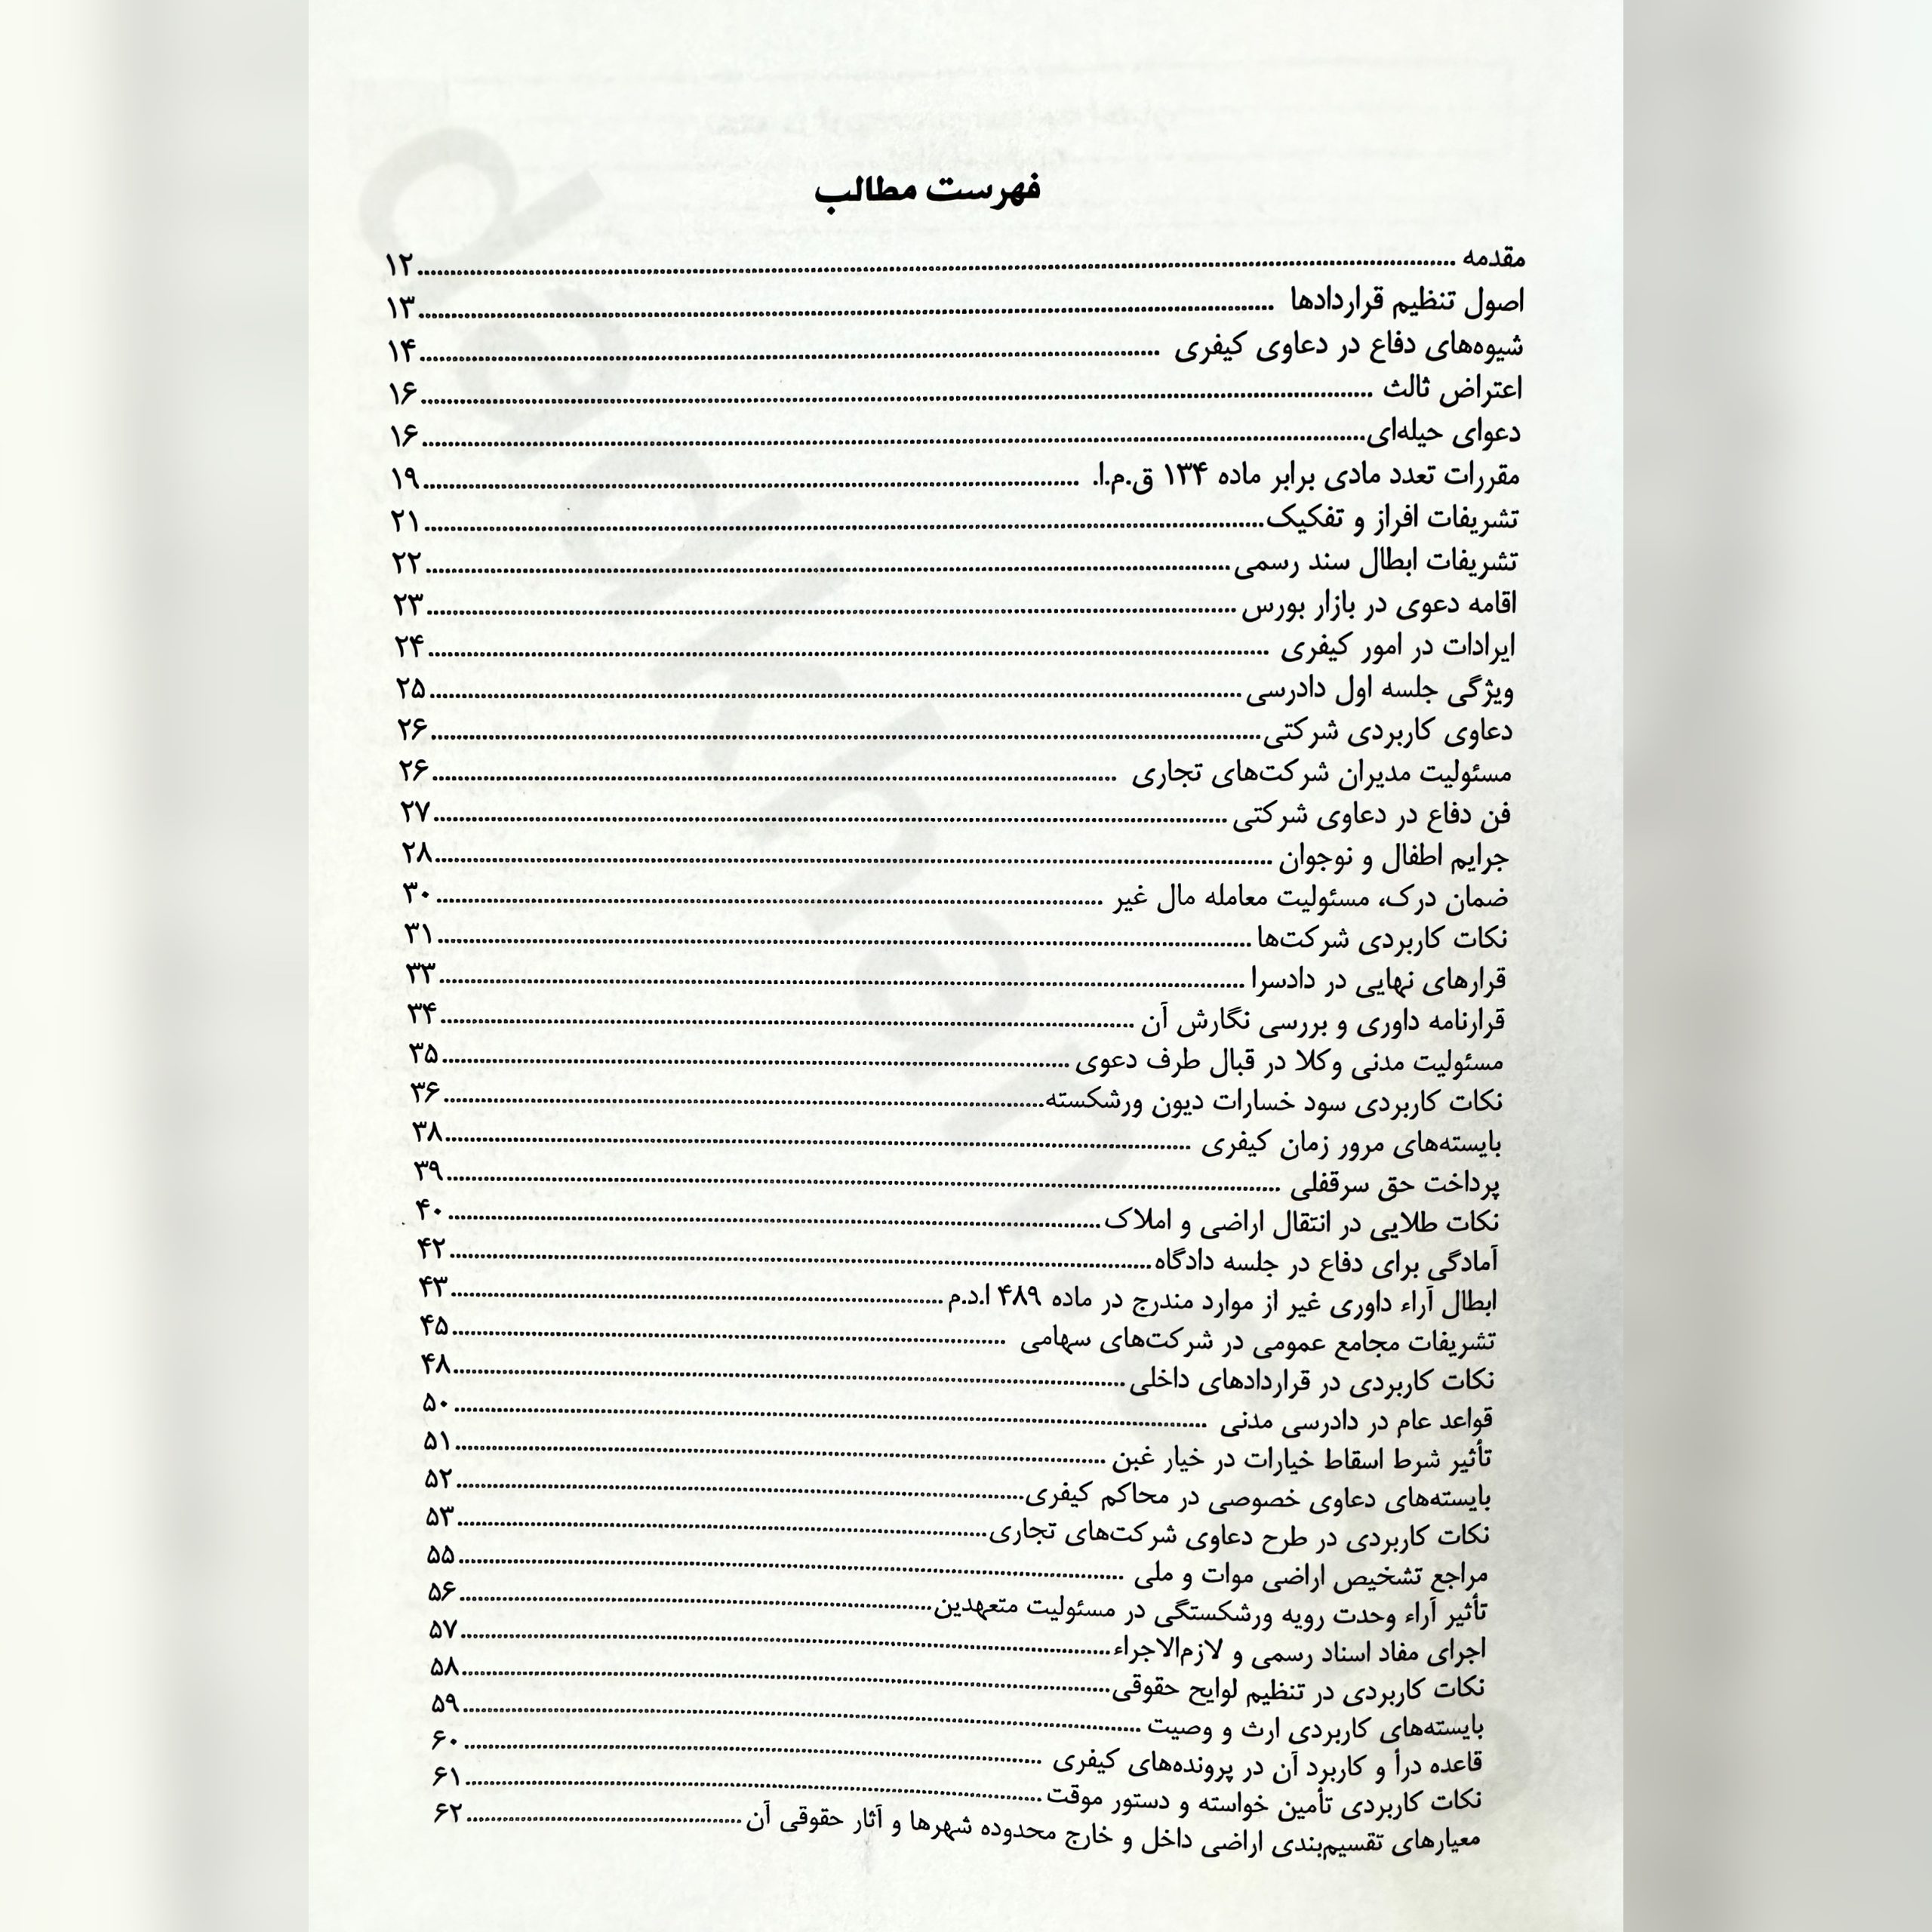 فهرست مطالب
مقدمه ........ ۱۲
اصول تنظیم قراردادها ........ ۱۳
شیوه‌های دفاع در دعاوی کیفری ........ ۱۴
اعتراض ثالث ........ ۱۶
دعوای حیله‌ای ........ ۱۶
مقررات تعدد مادی برابر ماده ۱۳۴ ق.م.ا. ........ ۱۹
تشریفات افراز و تفکیک ........ ۲۱
تشریفات ابطال سند رسمی ........ ۲۲
اقامه دعوی در بازار بورس ........ ۲۳
ایرادات در امور کیفری ........ ۲۴
ویژگی جلسه اول دادرسی ........ ۲۵
دعاوی کاربردی شرکتی ........ ۲۶
مسئولیت مدیران شرکت‌های تجاری ........ ۲۶
فن دفاع در دعاوی شرکتی ........ ۲۷
جرایم اطفال و نوجوان ........ ۲۸
ضمان درک، مسئولیت معامله مال غیر ........ ۳۰
نکات کاربردی شرکت‌ها ........ ۳۱
قرارهای نهایی در دادسرا ........ ۳۳
قرارنامه داوری و بررسی نگارش آن ........ ۳۴
مسئولیت مدنی وکلا در قبال طرف دعوی ........ ۳۵
نکات کاربردی سود خسارات دیون ورشکسته ........ ۳۶
بایسته‌های مرور زمان کیفری ........ ۳۸
پرداخت حق سرقفلی ........ ۳۹
نکات طلایی در انتقال اراضی و املاک ........ ۴۰
آمادگی برای دفاع در جلسه دادگاه ........ ۴۲
ابطال آراء داوری غیر از موارد مندرج در ماده ۴۸۹ ا.د.م ........ ۴۳
تشریفات مجامع عمومی در شرکت‌های سهامی ........ ۴۵
نکات کاربردی در قراردادهای داخلی ........ ۴۸
قواعد عام در دادرسی مدنی ........ ۵۰
تأثیر شرط اسقاط خیارات در خیار غبن ........ ۵۱
بایسته‌های دعاوی خصوصی در محاکم کیفری ........ ۵۲
نکات کاربردی در طرح دعاوی شرکت‌های تجاری ........ ۵۳
مراجع تشخیص اراضی موات و ملی ........ ۵۵
تأثیر آراء وحدت رویه ورشکستگی در مسئولیت متعهدین ........ ۵۶
اجرای مفاد اسناد رسمی و لازم‌الاجراء ........ ۵۷
نکات کاربردی در تنظیم لوایح حقوقی ........ ۵۸
بایسته‌های کاربردی ارث و وصیت ........ ۵۹
قاعده درأ و کاربرد آن در پرونده‌های کیفری ........ ۶۰
نکات کاربردی تأمین خواسته و دستور موقت ........ ۶۱
معیارهای تقسیم‌بندی اراضی داخل و خارج محدوده شهرها و آثار حقوقی آن ........ ۶۲